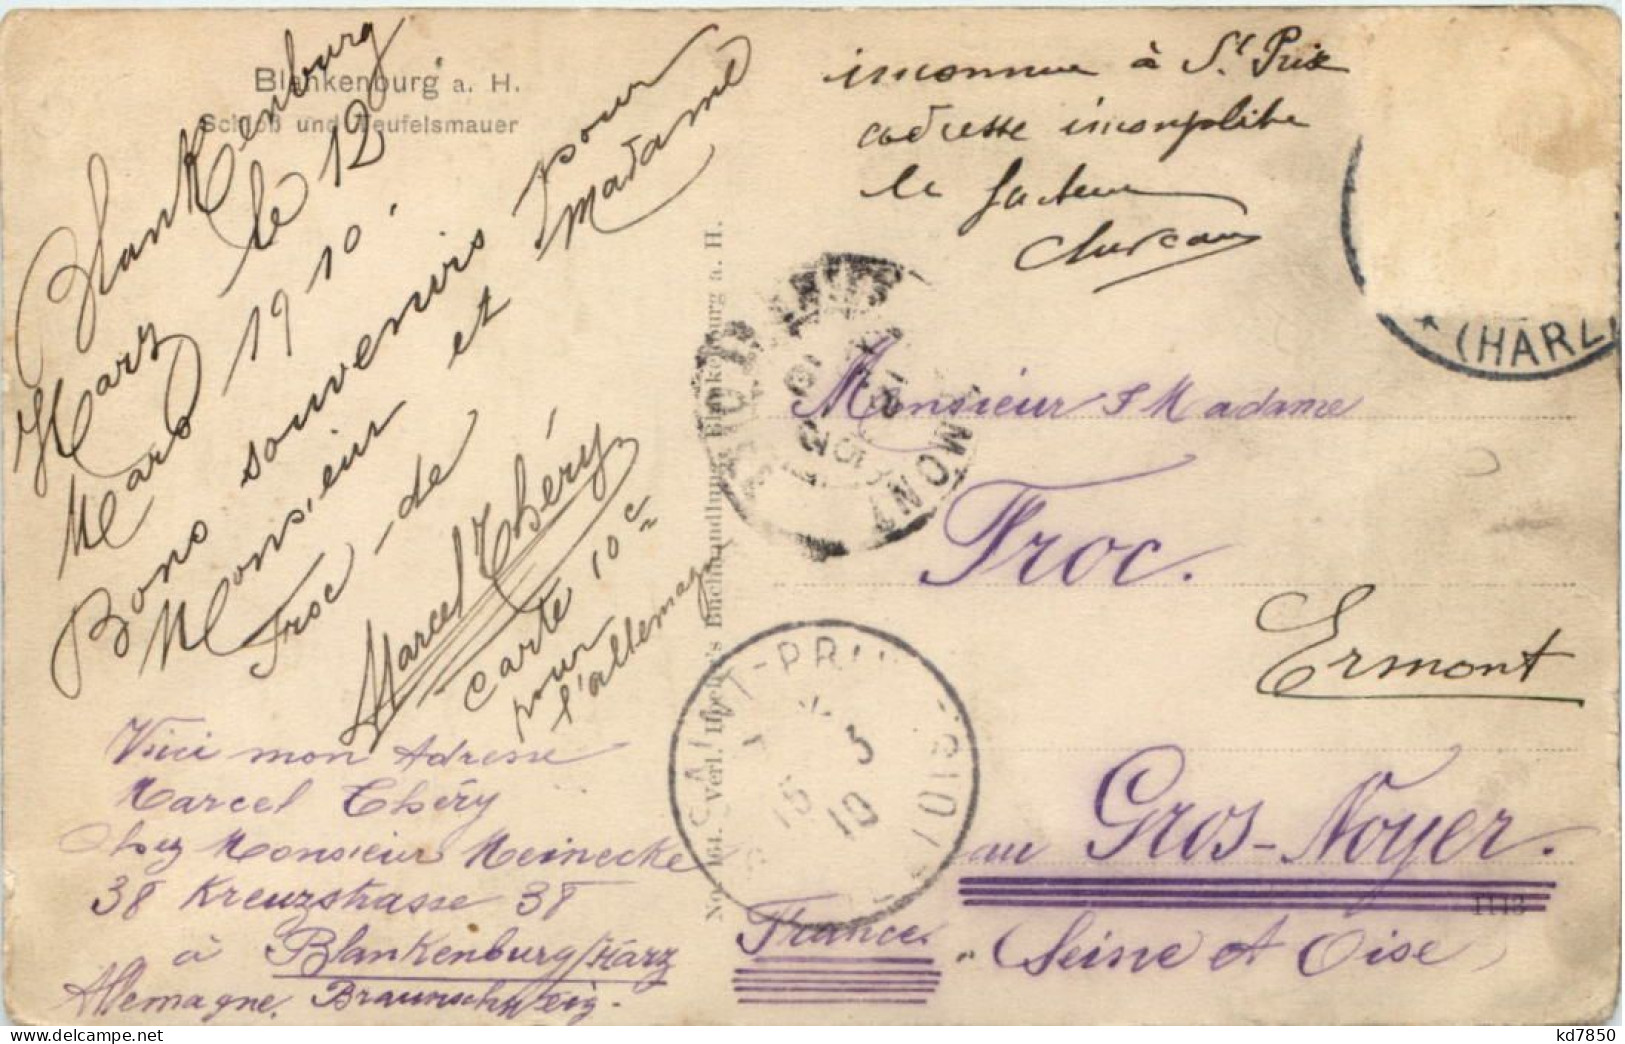 Blankenburg a. H.
Schloß und Teufelsmauer
Blankenburg
Harz le 12
Mars 1910.
Bons souvenirs pour
Monsieur et Madame
Froc - de
Marcel Théry
carte 10c
pour
l'allemag
Voici mon Adresse
Marcel Théry
Chez Monsieur Meinecke
38 Kreuzstrasse 38
à Blankenburg/Harz
Allemagne. Braunschweig.
inconnue à St Prix
adresse incomplète
le facteur
(HARZ
ERMONT
Monsieur & Madame
Froc.
Ermont
au Gros-Noyer.
France. (Seine et Oise)
SAINT-PRIX
15 3
10
Buchhandlung, Blankenburg a. H.
1113
kd7850